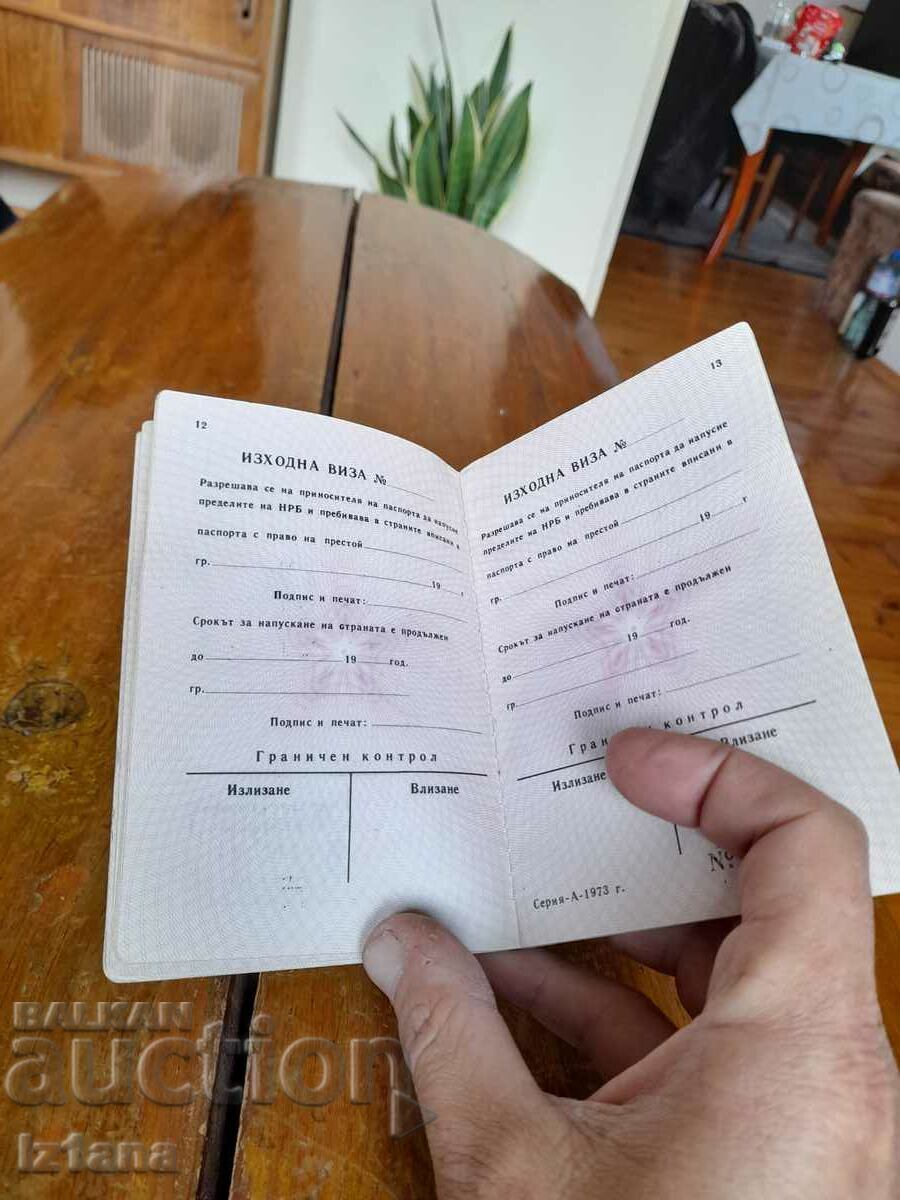 12
ИЗХОДНА ВИЗА №
Разрешава се на приносителя на паспорта да напусне
пределите на НРБ и пребивава в страните вписани в
паспорта с право на престой
гр. 19 г
Подпис и печат:
Срокът за напускане на страната е продължен
до 19 год.
гр.
Подпис и печат:
Граничен контрол
Излизане Влизане
13
ИЗХОДНА ВИЗА №
Разрешава се на приносителя на паспорта да напусне
пределите на НРБ и пребивава в страните вписани в
паспорта с право на престой
гр. 19 г
Подпис и печат:
Срокът за напускане на страната е продължен
до 19 год.
гр.
Подпис и печат:
контрол
Излизане Влизане
№
Серия-А-1973 г.
BALKAN
auction
iz1ana